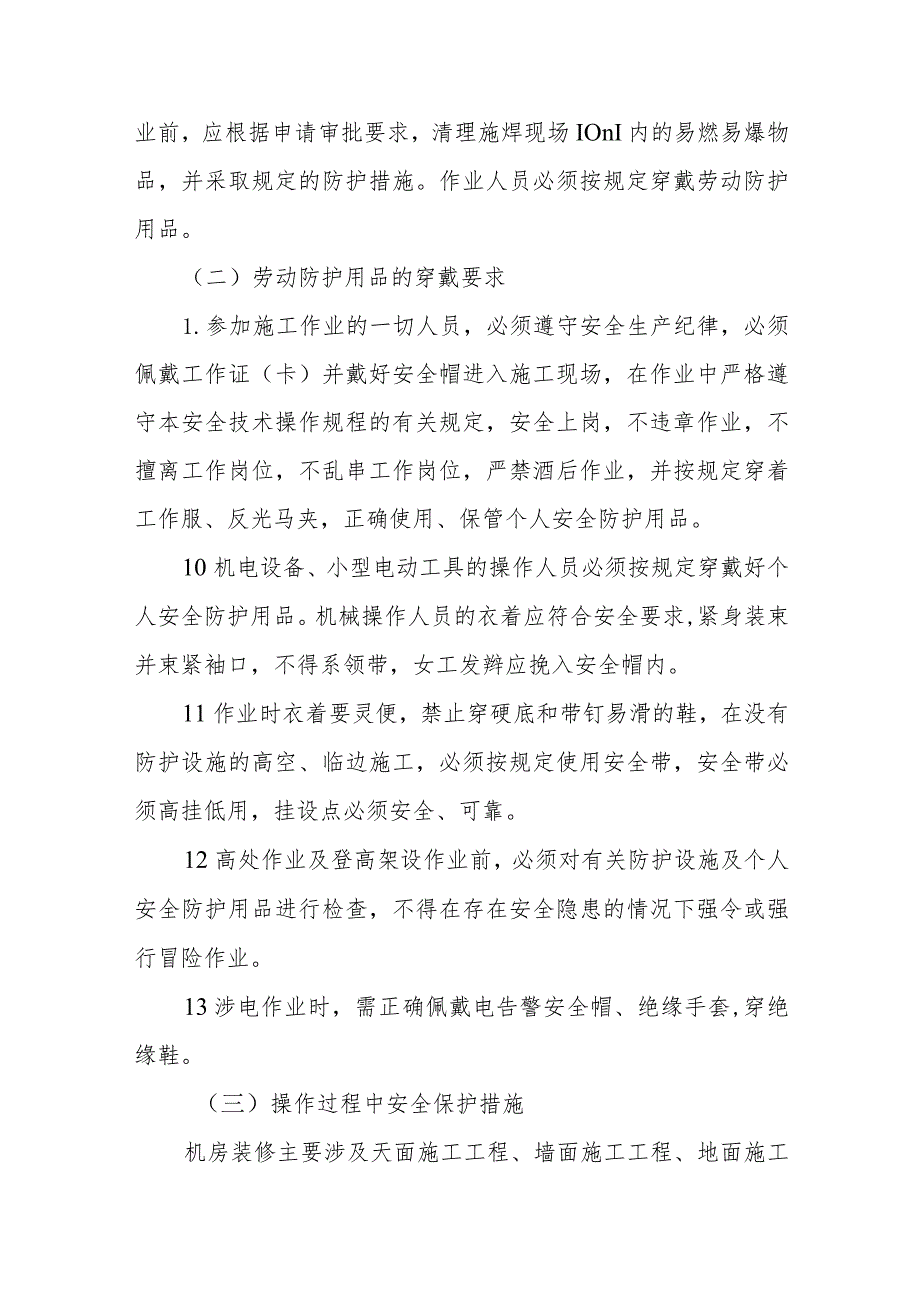 业前，应根据申请审批要求，清理施焊现场 IOnI 内的易燃易爆物
品，并采取规定的防护措施。作业人员必须按规定穿戴劳动防护
用品。
（二）劳动防护用品的穿戴要求
1. 参加施工作业的一切人员，必须遵守安全生产纪律，必须
佩戴工作证（卡）并戴好安全帽进入施工现场，在作业中严格遵
守本安全技术操作规程的有关规定，安全上岗，不违章作业，不
擅离工作岗位，不乱串工作岗位，严禁酒后作业，并按规定穿着
工作服、反光马夹，正确使用、保管个人安全防护用品。
10 机电设备、小型电动工具的操作人员必须按规定穿戴好个
人安全防护用品。机械操作人员的衣着应符合安全要求,紧身装束
并束紧袖口，不得系领带，女工发辫应挽入安全帽内。
11 作业时衣着要灵便，禁止穿硬底和带钉易滑的鞋，在没有
防护设施的高空、临边施工，必须按规定使用安全带，安全带必
须高挂低用，挂设点必须安全、可靠。
12 高处作业及登高架设作业前，必须对有关防护设施及个人
安全防护用品进行检查，不得在存在安全隐患的情况下强令或强
行冒险作业。
13 涉电作业时，需正确佩戴电告警安全帽、绝缘手套,穿绝
缘鞋。
（三）操作过程中安全保护措施
机房装修主要涉及天面施工工程、墙面施工工程、地面施工